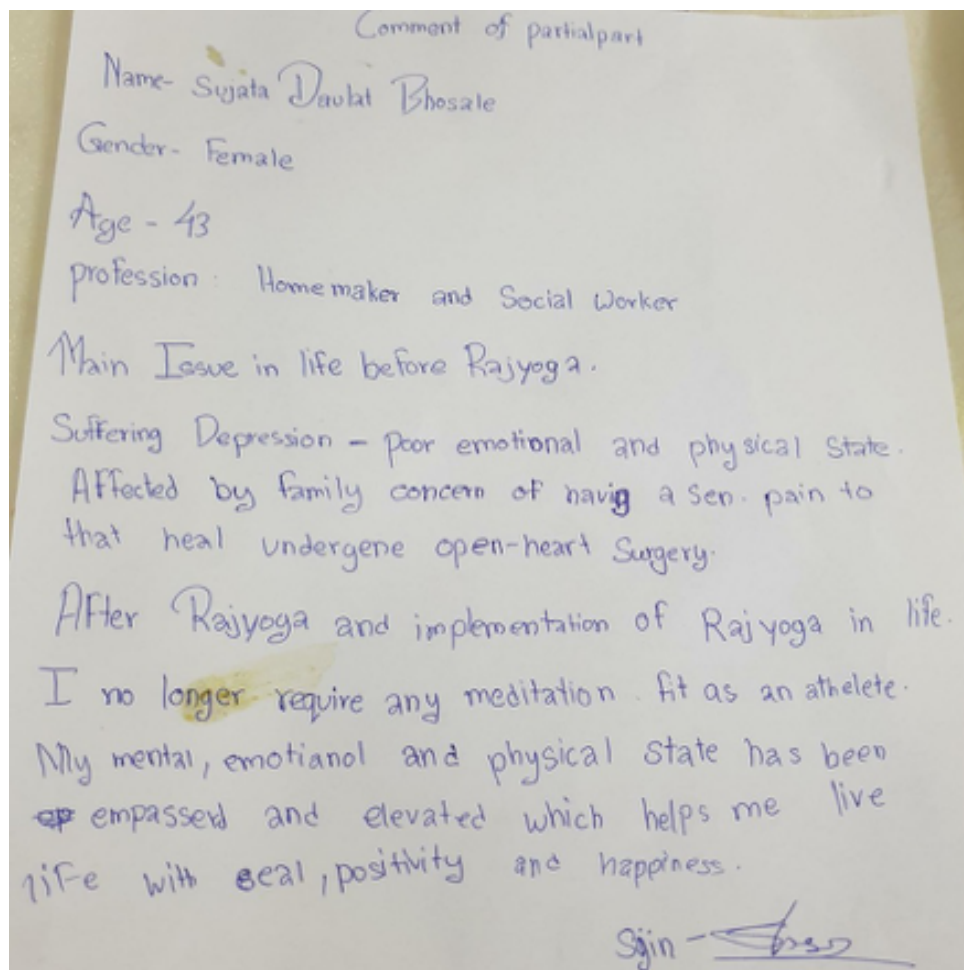 Comment of partialpart
Name- Sujata Daulat Bhosale
Gender- Female
Age - 43
profession : Homemaker and Social Worker
Main Issue in life before Rajyoga.
Suffering Depression - Poor emotional and physical state.
Affected by family concern of havig a Sen. pain to
that heal undergene open-heart Surgery.
After Rajyoga and implementation of Rajyoga in life.
I no longer require any meditation. fit as an athelete.
My mental, emotianol and physical state has been
empasserd and elevated which helps me live
life with seal, positivity and happiness.
Sgin -